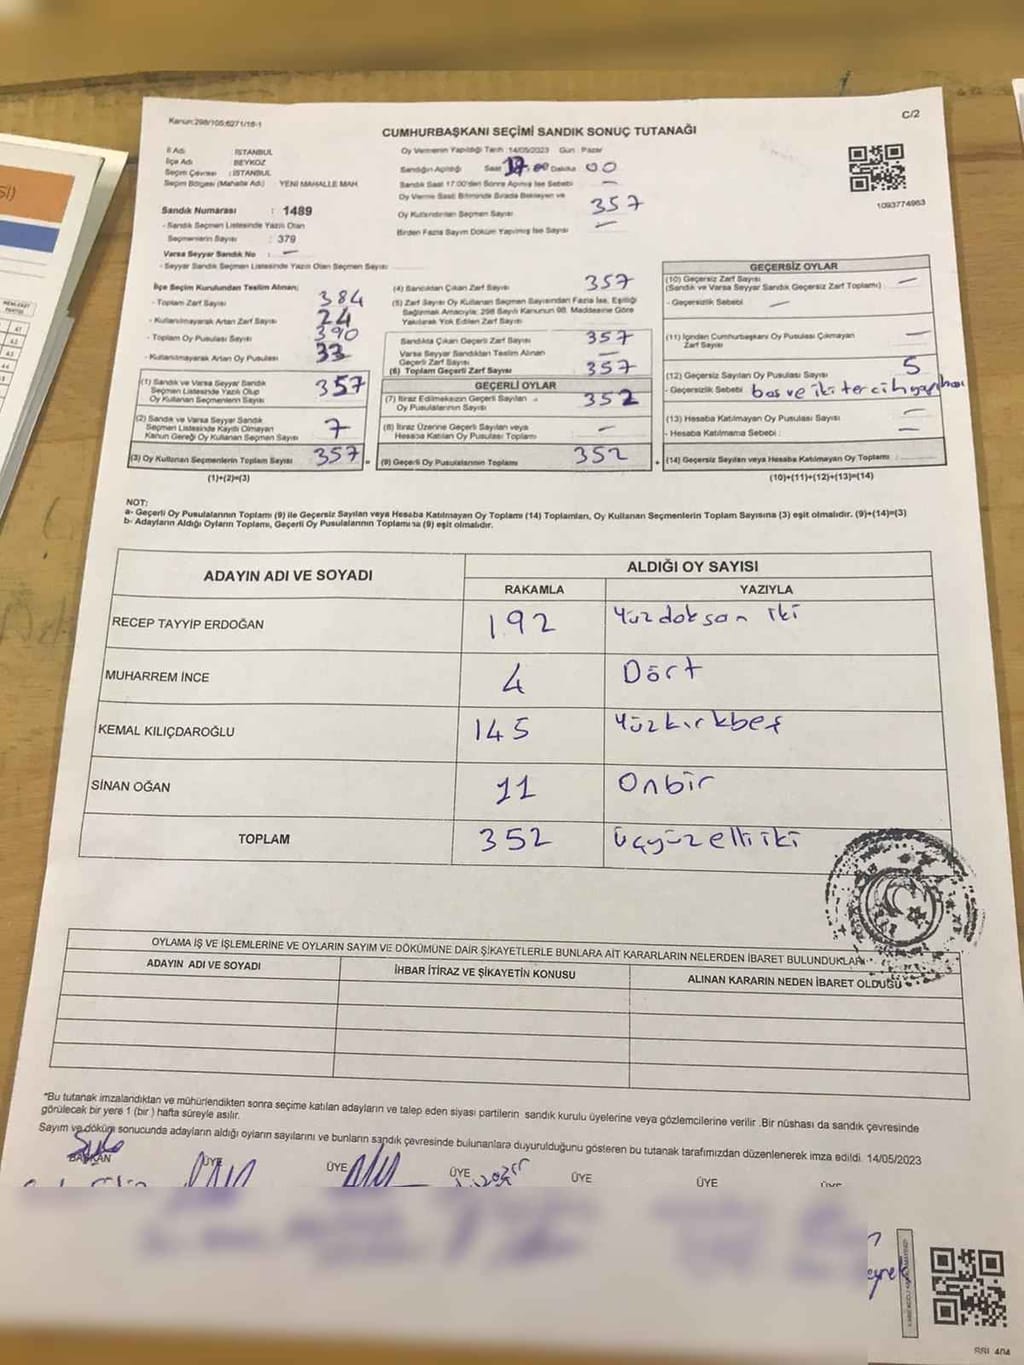 Kanun:298/105;6271/16-1
C/2
CUMHURBAŞKANI SEÇİMİ SANDIK SONUÇ TUTANAĞI
İl Adı : İSTANBUL
İlçe Adı : BEYKOZ
Seçim Çevresi : İSTANBUL
Seçim Bölgesi (Mahalle Adı) : YENİ MAHALLE MAH
Sandık Numarası : 1489
- Sandık Seçmen Listesinde Yazılı Olan
Seçmenlerin Sayısı : 379
Varsa Seyyar Sandık No : —
- Seyyar Sandık Seçmen Listesinde Yazılı Olan Seçmen Sayısı
Oy Vermenin Yapıldığı Tarih :14/05/2023 Gün : Pazar
Sandığın Açıldığı Saat : 00 Dakika 00
Sandık Saat 17:00'den Sonra Açılmış İse Sebebi —
Oy Verme Saati Bitiminde Sırada Bekleyen ve
Oy Kullandırılan Seçmen Sayısı 357
Birden Fazla Sayım Döküm Yapılmış İse Sayısı —
1093774963
İlçe Seçim Kurulundan Teslim Alınan;
- Toplam Zarf Sayısı 384
- Kullanılmayarak Artan Zarf Sayısı 24
- Toplam Oy Pusulası Sayısı 390
- Kullanılmayarak Artan Oy Pusulası 33
(1) Sandık ve Varsa Seyyar Sandık
Seçmen Listesinde Yazılı Olup
Oy Kullanan Seçmenlerin Sayısı 357
(2) Sandık ve Varsa Seyyar Sandık
Seçmen Listesinde Kayıtlı Olmayan
Kanun Gereği Oy Kullanan Seçmen Sayısı 7
(3) Oy Kullanan Seçmenlerin Toplam Sayısı 357
(1)+(2)=(3)
(4) Sandıktan Çıkan Zarf Sayısı 357
(5) Zarf Sayısı Oy Kullanan Seçmen Sayısından Fazla İse, Eşitliği
Sağlamak Amacıyla; 298 Sayılı Kanunun 98. Maddesine Göre
Yakılarak Yok Edilen Zarf Sayısı
Sandıkta Çıkan Geçerli Zarf Sayısı 357
Varsa Seyyar Sandıktan Teslim Alınan
Geçerli Zarf Sayısı —
(6) Toplam Geçerli Zarf Sayısı 357
GEÇERLİ OYLAR
(7) İtiraz Edilmeksizin Geçerli Sayılan
Oy Pusulalarının Sayısı 352
(8) İtiraz Üzerine Geçerli Sayılan veya
Hesaba Katılan Oy Pusulası Toplamı —
(9) Geçerli Oy Pusulalarının Toplamı 352
GEÇERSİZ OYLAR
(10) Geçersiz Zarf Sayısı
(Sandık ve Varsa Seyyar Sandık Geçersiz Zarf Toplamı) : —
- Geçersizlik Sebebi : —
(11) İçinden Cumhurbaşkanı Oy Pusulası Çıkmayan
Zarf Sayısı —
(12) Geçersiz Sayılan Oy Pusulası Sayısı 5
- Geçersizlik Sebebi boş ve iki tercih
(13) Hesaba Katılmayan Oy Pusulası Sayısı —
- Hesaba Katılmama Sebebi : —
(14) Geçersiz Sayılan veya Hesaba Katılmayan Oy Toplamı :
(10)+(11)+(12)+(13)=(14)
NOT:
a- Geçerli Oy Pusulalarının Toplamı (9) ile Geçersiz Sayılan veya Hesaba Katılmayan Oy Toplamı (14) Toplamları, Oy Kullanan Seçmenlerin Toplam Sayısına (3) eşit olmalıdır. (9)+(14)=(3)
b- Adayların Aldığı Oyların Toplamı, Geçerli Oy Pusulalarının Toplamına (9) eşit olmalıdır.
ADAYIN ADI VE SOYADI
ALDIĞI OY SAYISI
RAKAMLA YAZIYLA
RECEP TAYYİP ERDOĞAN 192 Yüzdoksan iki
MUHARREM İNCE 4 Dört
KEMAL KILIÇDAROĞLU 145 Yüzkırkbeş
SİNAN OĞAN 11 Onbir
TOPLAM 352 Üçyüzelliiki
OYLAMA İŞ VE İŞLEMLERİNE VE OYLARIN SAYIM VE DÖKÜMÜNE DAİR ŞİKAYETLERLE BUNLARA AİT KARARLARIN NELERDEN İBARET BULUNDUKLARI
ADAYIN ADI VE SOYADI İHBAR İTİRAZ VE ŞİKAYETİN KONUSU ALINAN KARARIN NEDEN İBARET OLDUĞU
*Bu tutanak imzalandıktan ve mühürlendikten sonra seçime katılan adayların ve talep eden siyasi partilerin sandık kurulu üyelerine veya gözlemcilerine verilir .Bir nüshası da sandık çevresinde
görülecek bir yere 1 (bir ) hafta süreyle asılır.
Sayım ve döküm sonucunda adayların aldığı oyların sayılarını ve bunların sandık çevresinde bulunanlara duyurulduğunu gösteren bu tutanak tarafımızdan düzenlenerek imza edildi. 14/05/2023
BAŞKAN ÜYE ÜYE ÜYE ÜYE ÜYE ÜYE